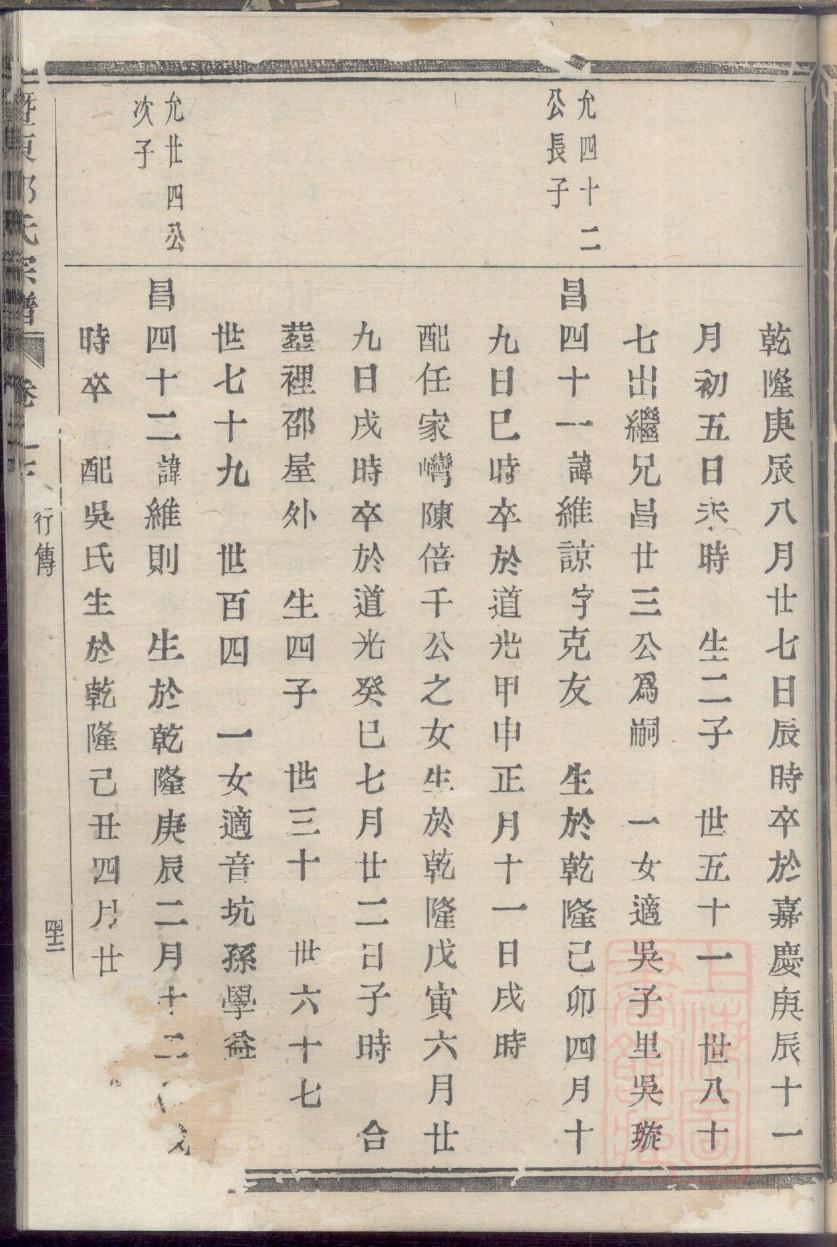 乾隆庚辰八月廿七日辰時卒於嘉慶庚辰十一
月初五日未時 生二子 世五十一 世八十
七出繼兄昌廿三公爲嗣 一女適吳子里吳璇
允四十二
公長子
昌四十一諱維諒字克友 生於乾隆己卯四月十
九日巳時卒於道光甲申正月十一日戌時
配任家灣陳倍千公之女生於乾隆戊寅六月廿
九日戌時卒於道光癸巳七月廿二日子時 合
葬裡邵屋外 生四子 世三十 世六十七
世七十九 世百四 一女適音坑孫學益
允廿四公
次子
昌四十二諱維則 生於乾隆庚辰二月十二
時卒 配吳氏生於乾隆己丑四月廿
氏宗譜 卷 行傳
上海圖
書館藏